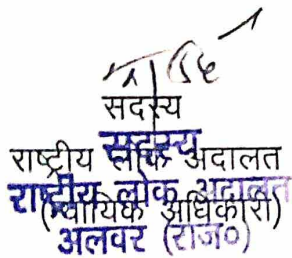 सदस्य
सदस्य
राष्ट्रीय लोक अदालत
राष्ट्रीय लोक अदालत
(न्यायिक अधिकारी)
अलवर (राज०)